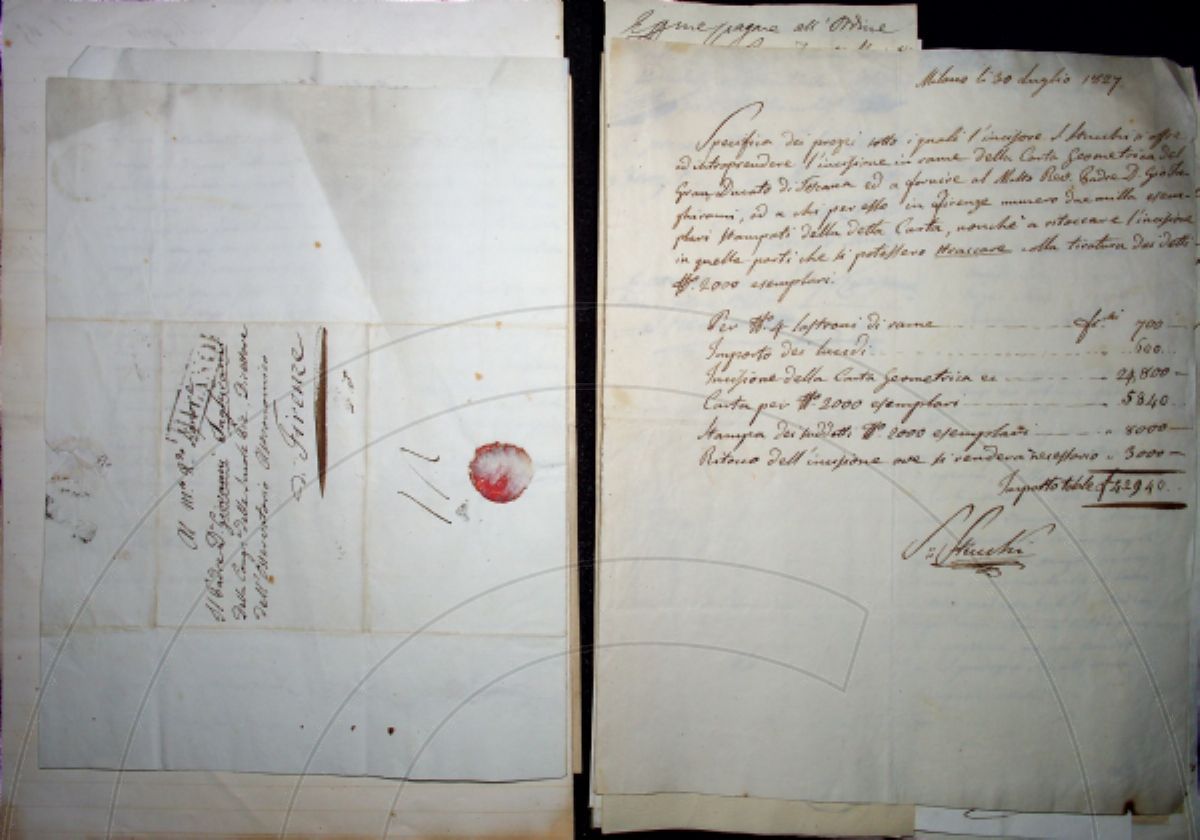 Al M.to R.do
Il Padre D.n Giovanni Inghirami
delle Scuole Pie Direttore
dell'Osservatorio Astronomico
di Firenze
pagare all'Ordine
Milano li 30 Luglio 1827.
Specifica dei prezzi sotto i quali l'incisore S. Stucchi s'offre
ad intraprendere l'incisione in rame della Carta Geometrica del
Gran Ducato di Toscana ed a fornire al Molto Rev. Padre D. Gio. In-
ghirami, od a chi per esso in Firenze numero due milla esem-
plari stampati della detta Carta, nonchè a ritoccare l'incisione
in quelle parti che si potessero straccare colla tiratura dei detti
N.° 2000 esemplari.
Per N.° 4 lastroni di rame fr.chi 700
Importo dei lucidi 600
Incisione della Carta Geometrica 24,800
Carta per N.° 2000 esemplari 5840
Stampa dei suddetti N.° 2000 esemplari 8000
Ritocco dell'incisione ove si renderà necessario 3000
Importo totale £ 42940.
S. Stucchi